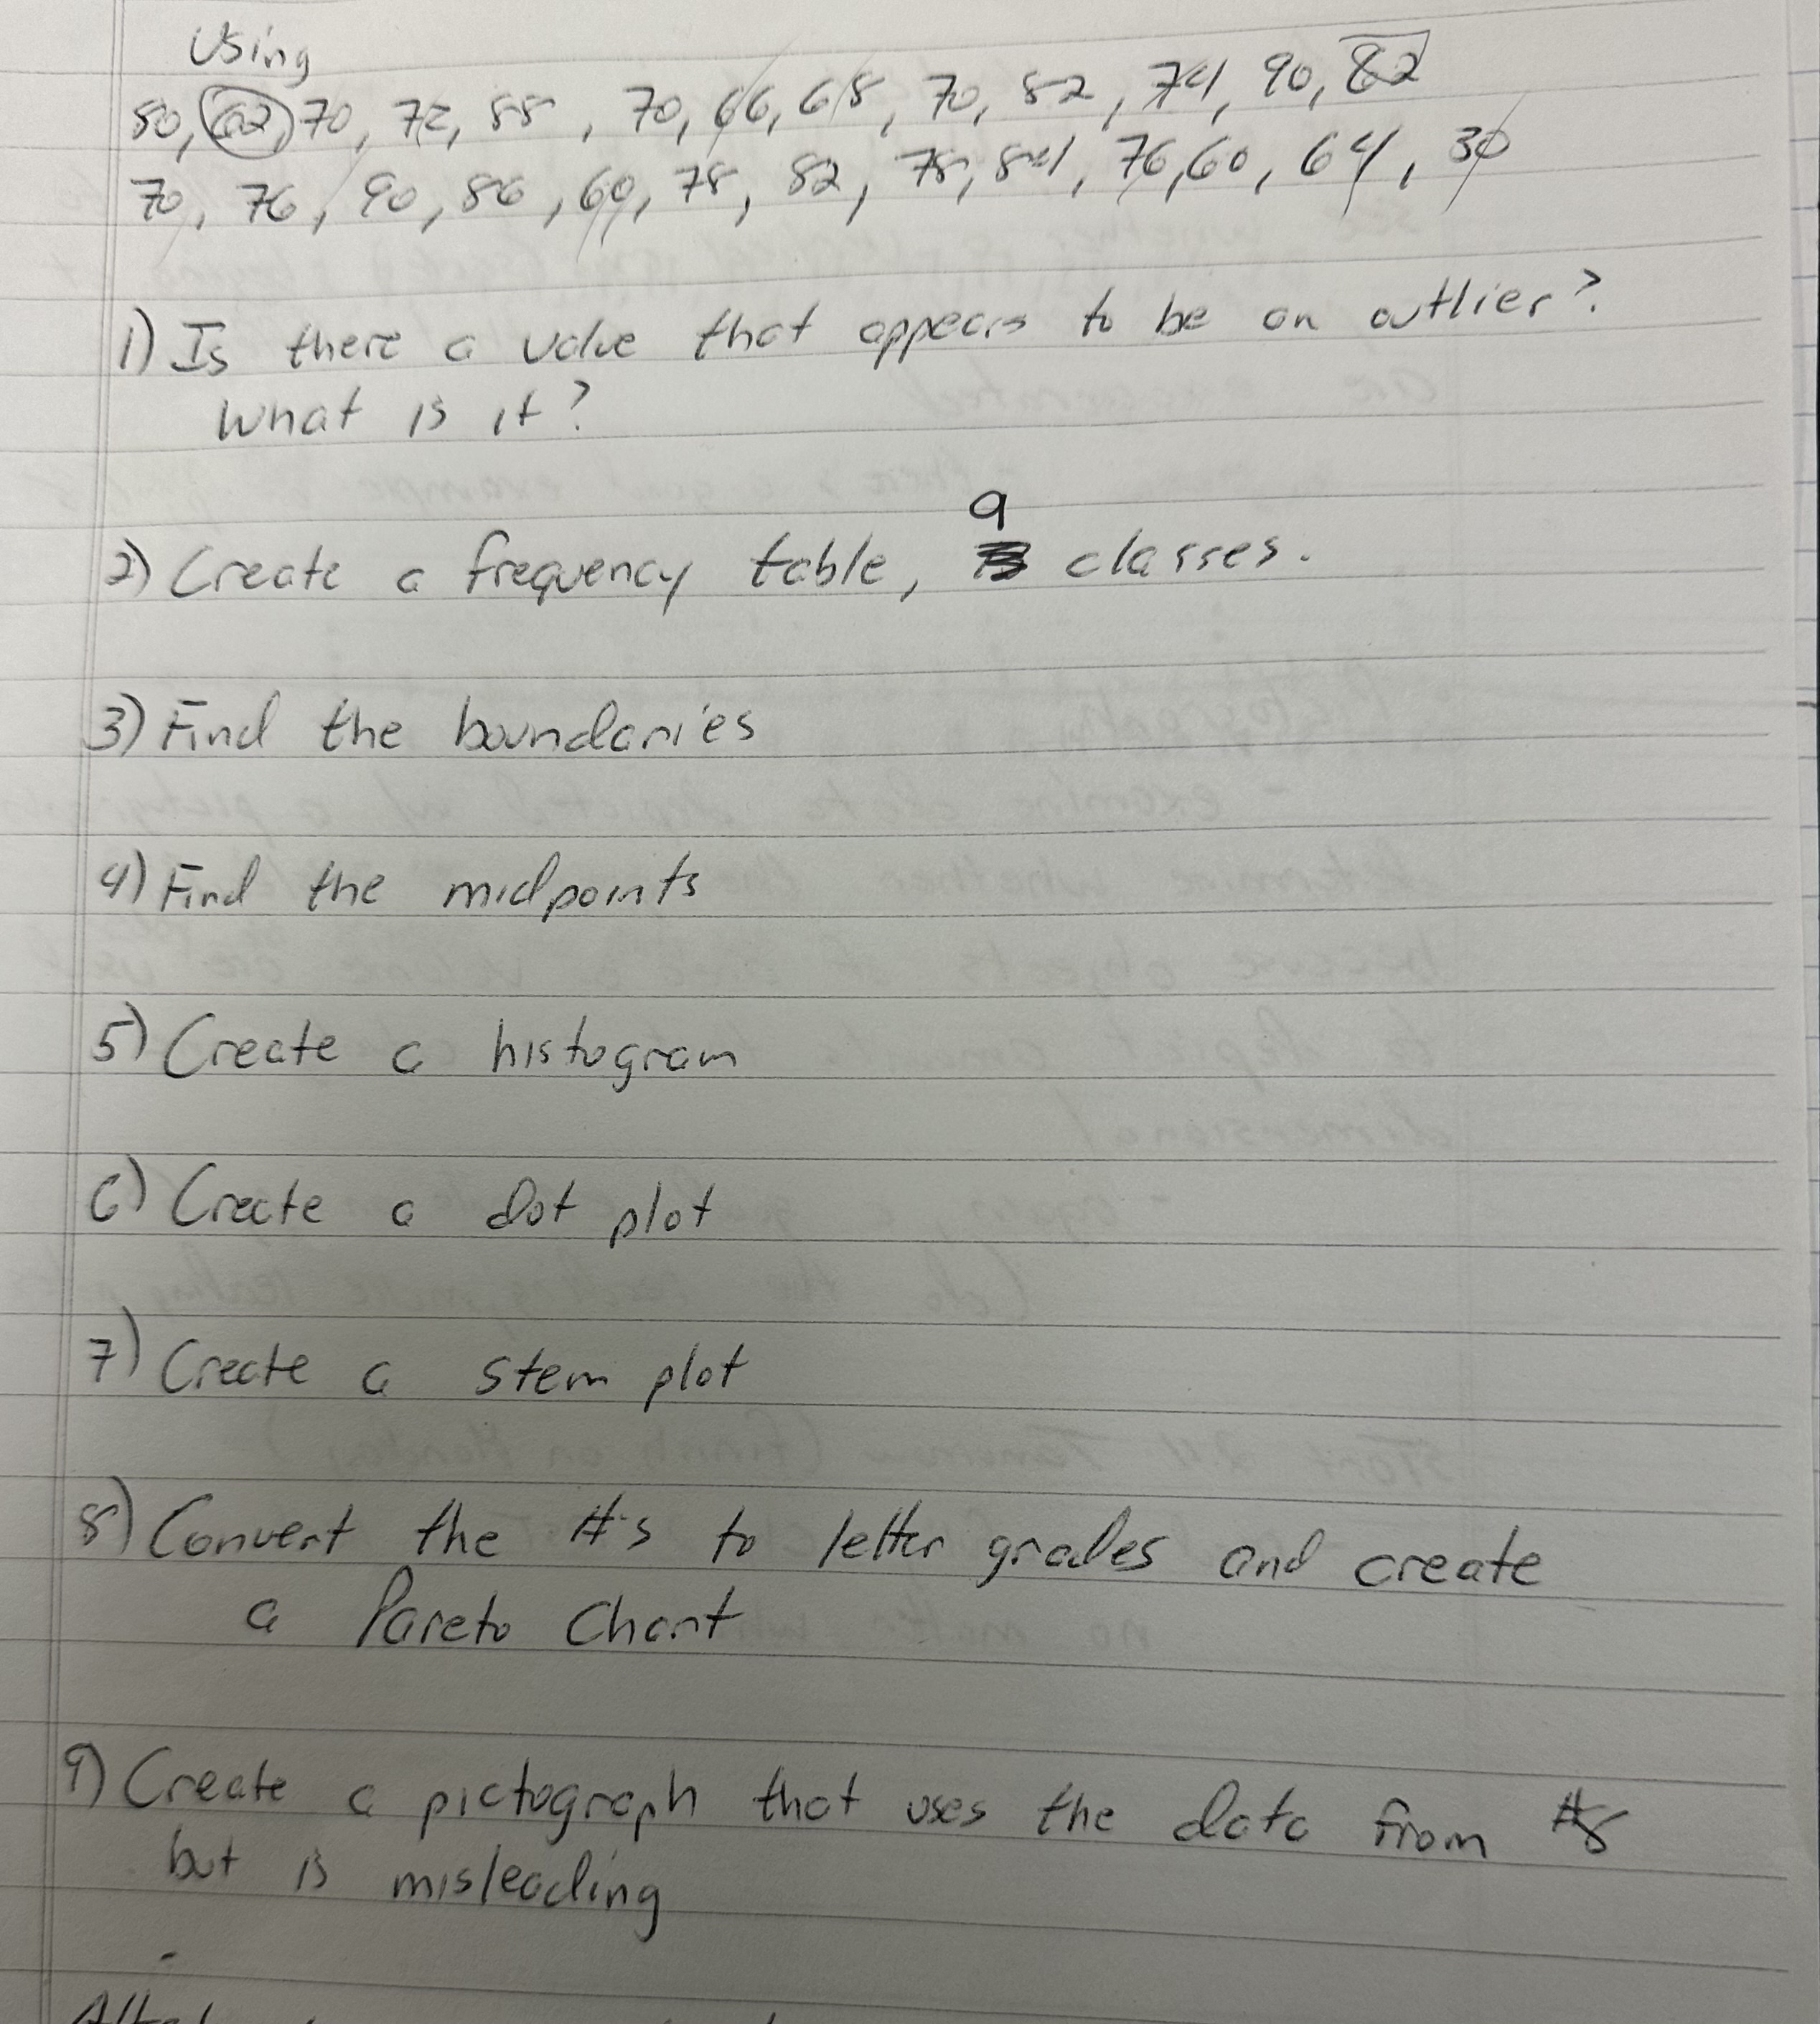 Using
80, 62, 70, 72, 88, 70, 66, 68, 70, 82, 74, 90, 82
70, 76, 90, 86, 60, 78, 82, 78, 84, 76, 60, 64, 30
1) Is there a value that appears to be an outlier?
What is it?
9
2) Create a frequency table, classes.
3) Find the boundaries
4) Find the midpoints
5) Create a histogram
6) Create a dot plot
7) Create a stem plot
8) Convert the #'s to letter grades and create
a Pareto Chart
9) Create a pictograph that uses the data from #8
but is misleading